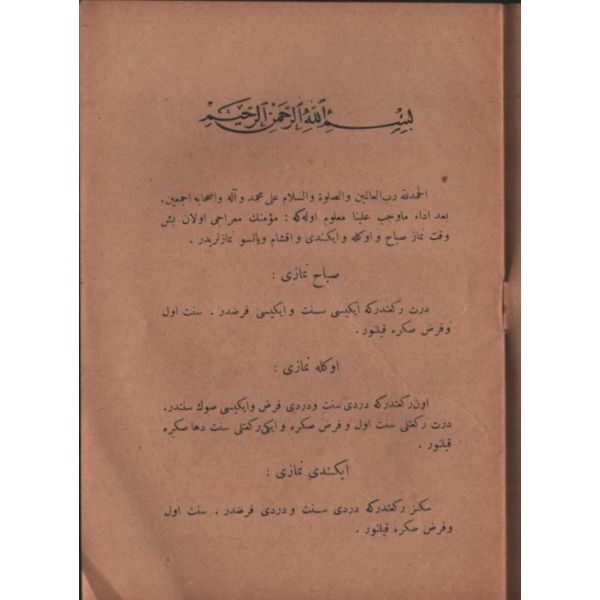 بسم الله الرحمن الرحيم
الحمدلله رب العالمين والصلوة والسلام على محمد وآله واصحابه اجمعين.
بعد اداء ماوجب علينا معلوم اوله‌كه : مؤمنك معراجى اولان بش
وقت نماز صباح و اوكله و ايكندى و اقشام و ياتسو نمازلريدر .
صباح نمازى :
درت ركعتدركه ايكيسى سنت و ايكيسى فرضدر . سنت اول
و فرض صكره قيلنور .
اوكله نمازى :
اون ركعتدركه دردى سنت ودردى فرض وايكيسى صوك سنتدر.
درت ركعتلى سنت اول و فرض صكره و ايكى ركعتلى سنت دها صكره
قيلنور .
ايكندى نمازى :
سكز ركعتدركه دردى سنت و دردى فرضدر . سنت اول
و فرض صكره قيلنور .